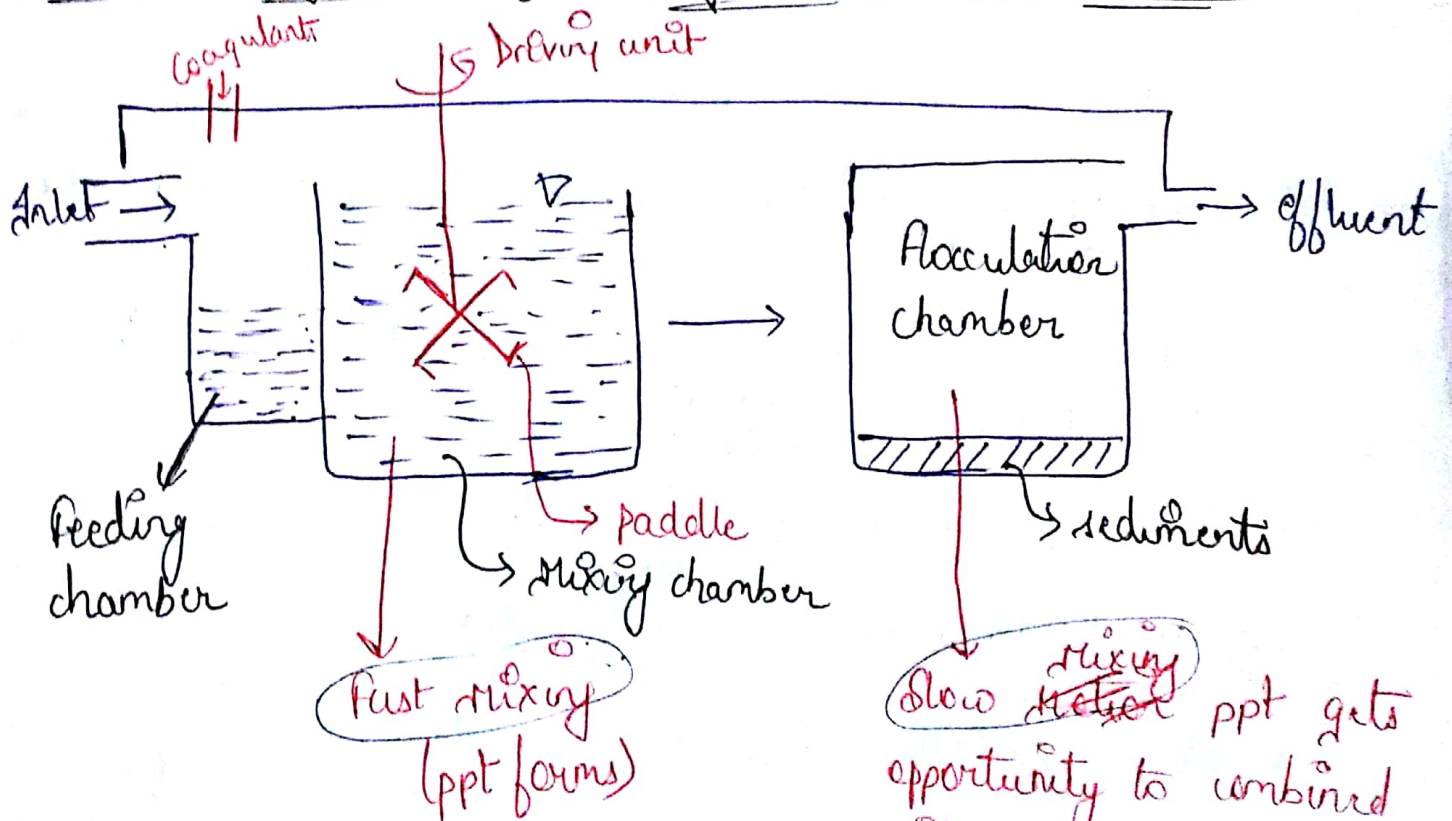 Coagulant
Driving unit
Inlet
effluent
Flocculation
chamber
Feeding
chamber
paddle
Mixing chamber
sediments
Fast Mixing
(ppt forms)
Mixing
Slow ppt gets
opportunity to combined